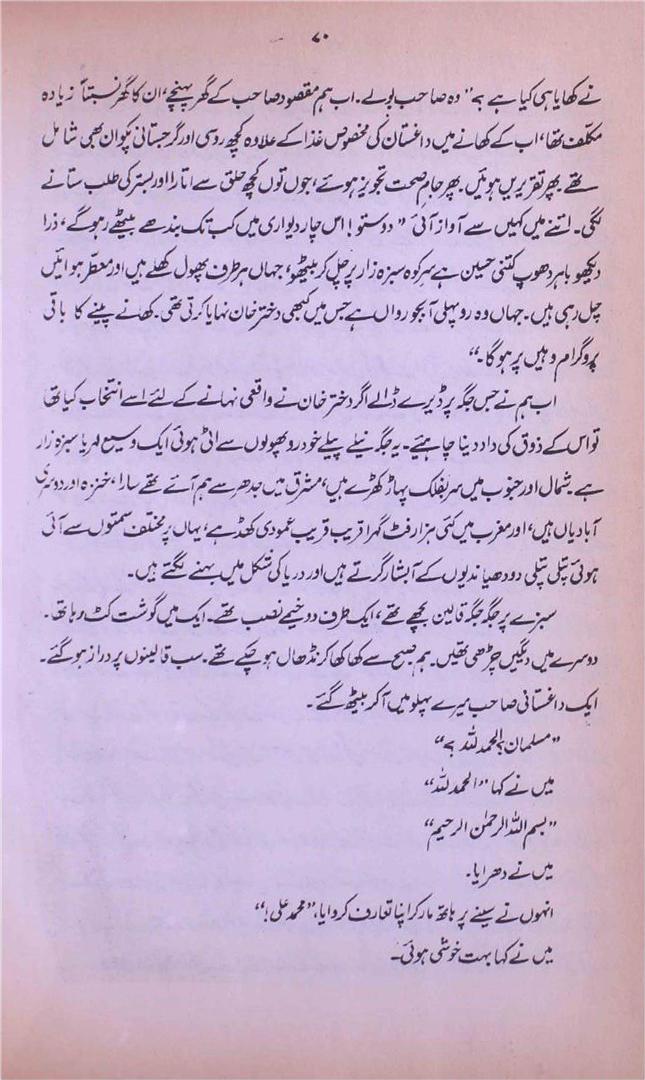 ۷۰
نے کھایا ہی کیا ہے؟“ وہ صاحب بولے۔ اب ہم مقصود صاحب کے گھر پہنچے، ان کا گھر نسبتاً زیادہ
مکلف تھا، اب کے کھانے میں داغستان کی مخصوص غذا کے علاوہ کچھ روسی اور گرجستانی پکوان بھی شامل
تھے پھر تقریریں ہوئیں۔ پھر جام صحت تجویز ہوئے، جوں توں کچھ حلق سے اتارا اور بستر کی طلب ستانے
لگی۔ اتنے میں کہیں سے آواز آئی ”دوستو! اس چار دیواری میں کب تک بندھے بیٹھے رہو گے، ذرا
دیکھو باہر دھوپ کتنی حسین ہے سر کوہ سبزہ زار پر چل کر بیٹھو، جہاں ہر طرف پھول کھلے ہیں اور معطر ہوائیں
چل رہی ہیں۔ جہاں وہ روپہلی آبجو رواں ہے جس میں کبھی دختر خان نہایا کرتی تھی۔ کھانے پینے کا باقی
پروگرام وہیں پر ہوگا۔“
اب ہم نے جس جگہ پر ڈیرے ڈالے اگر دختر خان نے واقعی نہانے کے لئے اسے انتخاب کیا تھا
تو اس کے ذوق کی داد دینا چاہئیے۔ یہ جگہ نیلے پیلے خودرو پھولوں سے اٹی ہوئی ایک وسیع لہریا سبزہ زار
ہے۔ شمال اور جنوب میں سربفلک پہاڑ کھڑے ہیں، مشرق میں جدھر سے ہم آئے تھے سارا، خنزہ اور دوسری
آبادیاں ہیں، اور مغرب میں کئی ہزار فٹ گہرا قریب قریب عمودی کھڈ ہے، یہاں پر مختلف سمتوں سے آئی
ہوئی پتلی پتلی دودھیا ندیوں کے آبشار گرتے ہیں اور دریا کی شکل میں بہنے لگتے ہیں۔
سبزے پر جگہ جگہ قالین بچھے تھے، ایک طرف دو خیمے نصب تھے۔ ایک میں گوشت کٹ رہا تھا۔
دوسرے میں دیگیں چڑھی تھیں۔ ہم صبح سے کھا کھا کر نڈھال ہو چکے تھے۔ سب قالینوں پر دراز ہو گئے۔
ایک داغستانی صاحب میرے پہلو میں آکر بیٹھ گئے۔
”مسلمان؟ الحمد للہ؟“
میں نے کہا ”الحمد للہ“
”بسم اللہ الرحمٰن الرحیم“
میں نے دھرایا۔
انہوں نے سینے پر ہاتھ مار کر اپنا تعارف کروایا، ”محمد علی!“
میں نے کہا بہت خوشی ہوئی۔